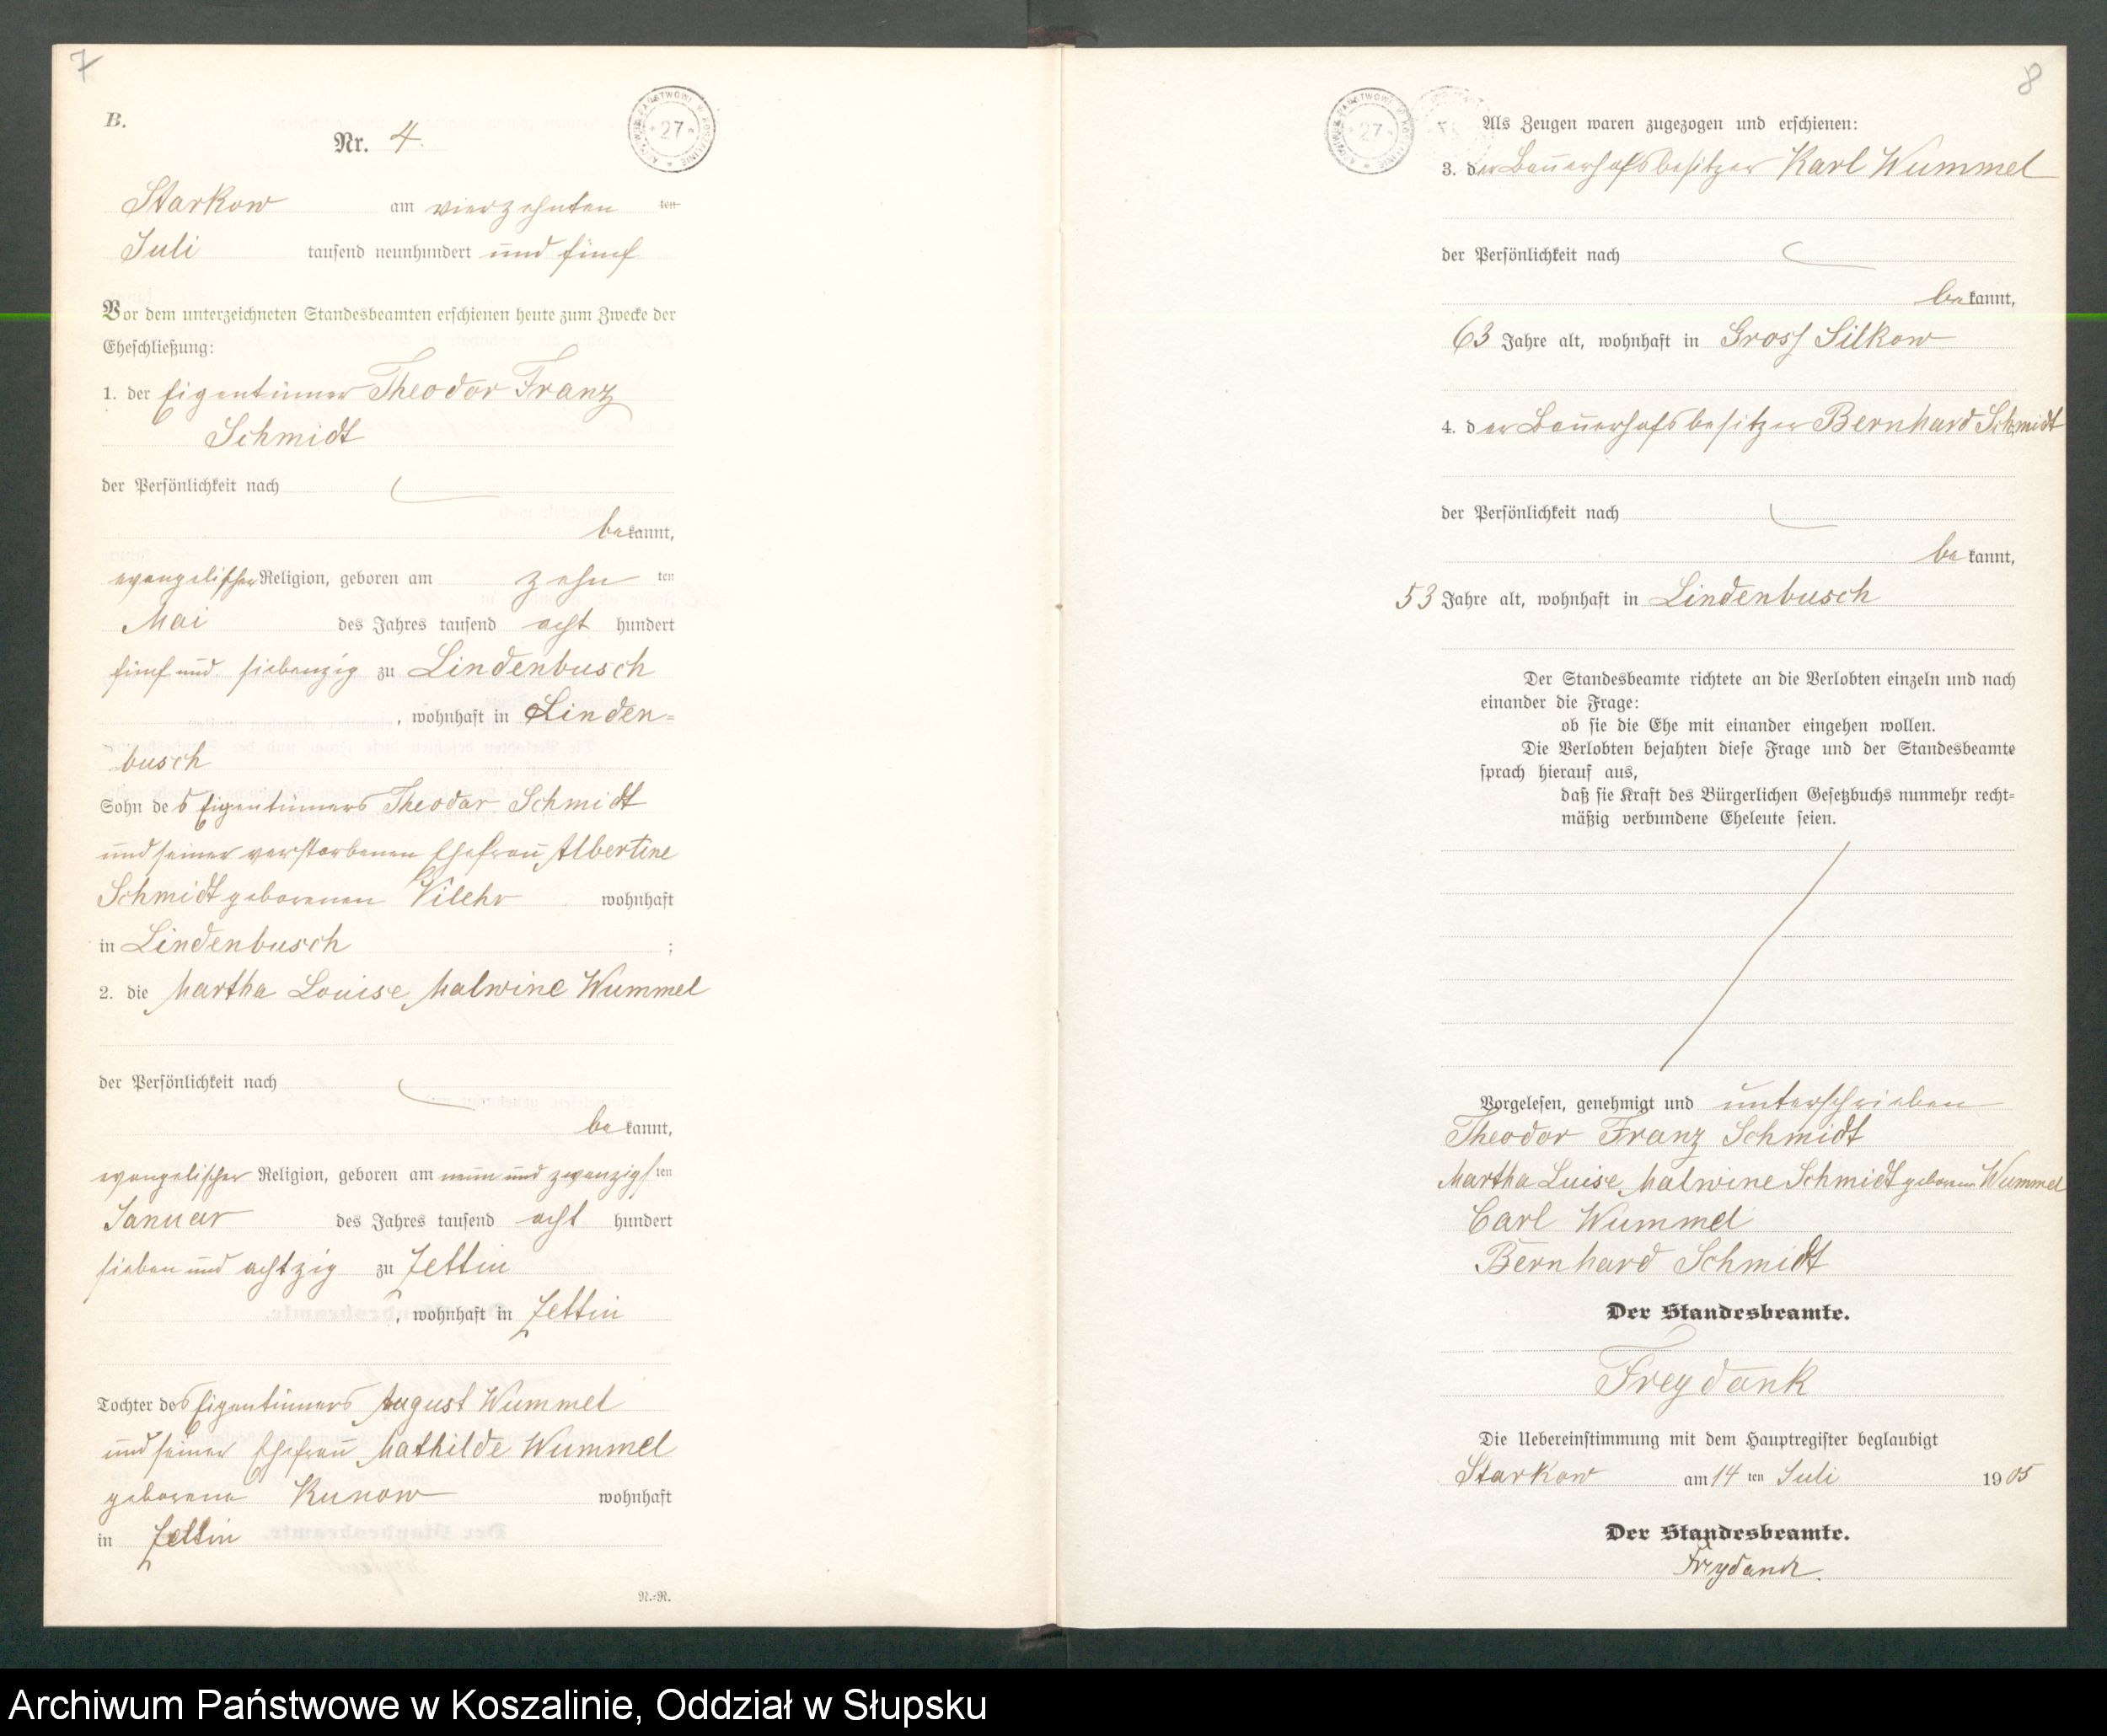 7
B.
Nr. 4.
ARCHIWUM PAŃSTWOWE W KOSZALINIE * 27 *
Starkow am vierzehnten ten
Juli tausend neunhundert und fünf
Vor dem unterzeichneten Standesbeamten erschienen heute zum Zwecke der
Eheschließung:
1. der Eigentümer Theodor Franz
Schmidt
der Persönlichkeit nach
bekannt,
evangelischer Religion, geboren am zehn ten
Mai des Jahres tausend acht hundert
fünf und siebenzig zu Lindenbusch
, wohnhaft in Linden=
busch
Sohn des Eigentümers Theodor Schmidt
und seiner verstorbenen Ehefrau Albertine
Schmidt geborenen wohnhaft
in Lindenbusch ;
2. die Martha Louise Malwine Wummel
der Persönlichkeit nach
bekannt,
evangelischer Religion, geboren am neun und zwanzigsten
Januar des Jahres tausend acht hundert
sieben und achtzig zu Zettin
, wohnhaft in Zettin
Tochter des Eigentümers August Wummel
und seiner Ehefrau Mathilde Wummel
geborene Kunow wohnhaft
in Zettin
N.=N.
8
ARCHIWUM PAŃSTWOWE W KOSZALINIE * 27 *
Als Zeugen waren zugezogen und erschienen:
3. der Bauerhofsbesitzer Karl Wummel
der Persönlichkeit nach
bekannt,
63 Jahre alt, wohnhaft in Gross Silkow
4. der Bauerhofsbesitzer Bernhard Schmidt
der Persönlichkeit nach
bekannt,
53 Jahre alt, wohnhaft in Lindenbusch
Der Standesbeamte richtete an die Verlobten einzeln und nach
einander die Frage:
ob sie die Ehe mit einander eingehen wollen.
Die Verlobten bejahten diese Frage und der Standesbeamte
sprach hierauf aus,
daß sie Kraft des Bürgerlichen Gesetzbuchs nunmehr recht=
mäßig verbundene Eheleute seien.
Vorgelesen, genehmigt und unterschrieben
Theodor Franz Schmidt
Martha Luise Malwine Schmidt geborene Wummel
Carl Wummel
Bernhard Schmidt
Der Standesbeamte.
Freydank
Die Uebereinstimmung mit dem Hauptregister beglaubigt
Starkow am 14 ten Juli 1905
Der Standesbeamte.
Freydank.
Archiwum Państwowe w Koszalinie, Oddział w Słupsku